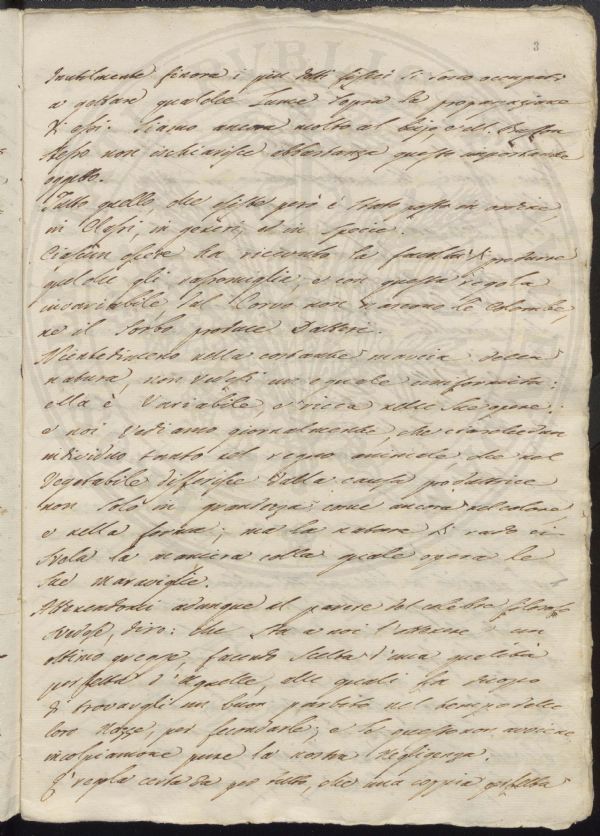 3
Inutilmente finora i più dotti fisici si sono occupati
a gettare qualche lume sopra la propagazione
di essi. Siamo ancora molto al bujo, ed
stesso non ischiarisce abbastanza questo importante
oggetto.
Tutto quello che esiste però è stato posto in ordine
in Classi, in generi, ed in specie.
Ciascun essere ha ricevuto la facoltà di produrre
quel che gli rassomiglia, e con questa regola
invariabile, dal Corvo non nascono le Colombe,
ne il Sorbo produce Datteri.
Nientedimeno nella costante marcia della
natura, non vedesi una eguale uniformità:
ella è variabile, e ricca nelle sue opere:
e noi vediamo giornalmente, che ciaschedun
individuo tanto nel regno animale, che nel
vegetabile differisce dalla causa produttrice
non solo in grandezza come ancora nel colore
e nella forma; ma la natura di rado ci
svela la maniera colla quale opera le
sue maraviglie.
Attenendomi adunque al parere del celebre filosofo
dirò: che sta a noi l'ottenere un
ottimo gregge, facendo scelta d'una qualità
perfetta d'Agnelle, alle quali fa duopo
di trovargli un buon partito nel tempo delle
loro Nozze, per fecondarle; e se questo non avviene
incolpiamone pure la nostra negligenza.
E' regola certa da per tutto, che una coppia perfetta